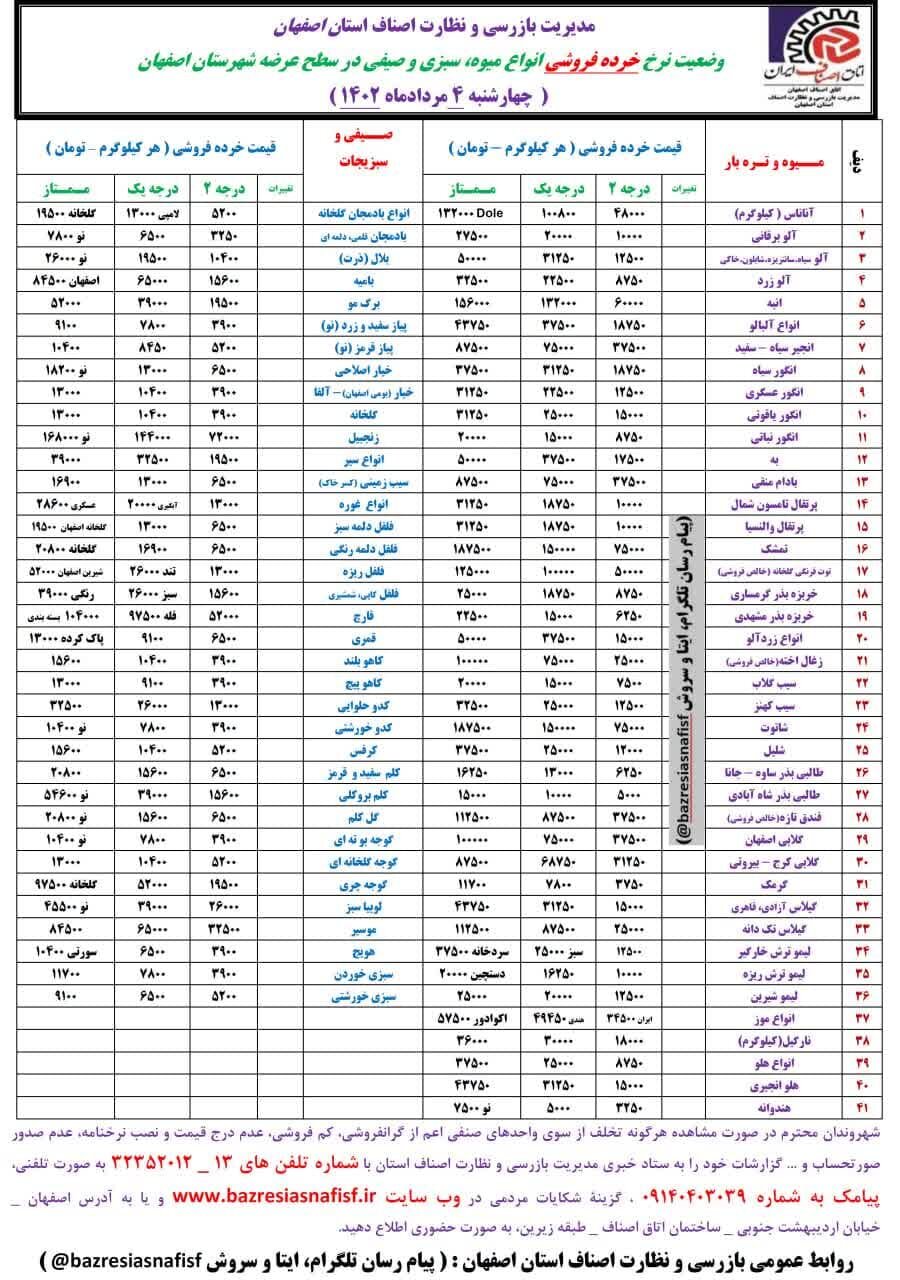 مدیریت بازرسی و نظارت اصناف استان اصفهان
وضعیت نرخ خرده فروشی انواع میوه، سبزی و صیفی در سطح عرضه شهرستان اصفهان
( چهارشنبه ۴ مردادماه ۱۴۰۲ )
اتاق اصناف ایران
اتاق اصناف اصفهان
مدیریت بازرسی و نظارت اصناف
استان اصفهان
ردیف میوه و تره بار قیمت خرده فروشی ( هر کیلوگرم – تومان ) صیفی و سبزیجات قیمت خرده فروشی ( هر کیلوگرم – تومان )
تغییرات درجه ۲ درجه یک ممتاز تغییرات درجه ۲ درجه یک ممتاز
۱ آناناس ( کیلوگرم) ۴۸۰۰۰ ۱۰۰۸۰۰ Dole ۱۳۲۰۰۰ انواع بادمجان گلخانه ۵۲۰۰ لامپی ۱۳۰۰۰ گلخانه ۱۹۵۰۰
۲ آلو برقانی ۱۰۰۰۰ ۲۰۰۰۰ ۲۷۵۰۰ بادمجان قلمی، دلمه ای ۳۲۵۰ ۶۵۰۰ نو ۷۸۰۰
۳ آلو سیاه، سانتریزه، شابلون، خاکی ۱۲۵۰۰ ۳۱۲۵۰ ۵۰۰۰۰ بلال (ذرت) ۱۰۴۰۰ ۱۹۵۰۰ نو ۲۶۰۰۰
۴ آلو زرد ۸۷۵۰ ۲۲۵۰۰ ۳۲۵۰۰ بامیه ۱۵۶۰۰ ۶۵۰۰۰ اصفهان ۸۴۵۰۰
۵ انبه ۶۰۰۰۰ ۱۳۲۰۰۰ ۱۵۶۰۰۰ برگ مو ۱۹۵۰۰ ۳۹۰۰۰ ۵۲۰۰۰
۶ انواع آلبالو ۱۸۷۵۰ ۳۷۵۰۰ ۴۳۷۵۰ پیاز سفید و زرد (نو) ۳۹۰۰ ۷۸۰۰ ۹۱۰۰
۷ انجیر سیاه – سفید ۳۷۵۰۰ ۷۵۰۰۰ ۸۷۵۰۰ پیاز قرمز (نو) ۵۲۰۰ ۸۴۵۰ ۱۰۴۰۰
۸ انگور سیاه ۱۸۷۵۰ ۳۱۲۵۰ ۳۷۵۰۰ خیار اصلاحی ۶۵۰۰ ۱۳۰۰۰ نو ۱۸۲۰۰
۹ انگور عسکری ۱۲۵۰۰ ۲۲۵۰۰ ۳۱۲۵۰ خیار (بومی اصفهان) – آلفا ۳۹۰۰ ۱۰۴۰۰ ۱۳۰۰۰
۱۰ انگور یاقوتی ۱۵۰۰۰ ۲۵۰۰۰ ۳۱۲۵۰ گلخانه ۳۹۰۰ ۱۰۴۰۰ ۱۳۰۰۰
۱۱ انگور نباتی ۸۷۵۰ ۱۵۰۰۰ ۲۰۰۰۰ زنجبیل ۷۲۰۰۰ ۱۴۴۰۰۰ نو ۱۶۸۰۰۰
۱۲ به ۱۷۵۰۰ ۳۷۵۰۰ ۵۰۰۰۰ انواع سیر ۱۹۵۰۰ ۳۲۵۰۰ ۳۹۰۰۰
۱۳ بادام منقی ۳۷۵۰۰ ۷۵۰۰۰ ۸۷۵۰۰ سیب زمینی (کسر خاک) ۶۵۰۰ ۱۳۰۰۰ ۱۶۹۰۰
۱۴ پرتقال تامسون شمال ۱۰۰۰۰ ۱۸۷۵۰ ۳۱۲۵۰ انواع غوره ۱۳۰۰۰ آبگیری ۲۰۰۰۰ عسکری ۲۸۶۰۰
۱۵ پرتقال والنسیا ۱۰۰۰۰ ۱۸۷۵۰ ۳۱۲۵۰ فلفل دلمه سبز ۶۵۰۰ ۱۳۰۰۰ گلخانه اصفهان ۱۹۵۰۰
۱۶ تمشک ۷۵۰۰۰ ۱۵۰۰۰۰ ۱۸۷۵۰۰ فلفل دلمه رنگی ۶۵۰۰ ۱۶۹۰۰ گلخانه ۲۰۸۰۰
۱۷ توت فرنگی گلخانه (خالص فروشی) ۵۰۰۰۰ ۱۰۰۰۰۰ ۱۲۵۰۰۰ فلفل ریزه ۱۳۰۰۰ تند ۲۶۰۰۰ شیرین اصفهان ۵۲۰۰۰
۱۸ خربزه بذر گرمساری ۸۷۵۰ ۱۸۷۵۰ ۲۵۰۰۰ فلفل کاپی، شمشیری ۱۵۶۰۰ سبز ۲۶۰۰۰ رنگی ۳۹۰۰۰
۱۹ خربزه بذر مشهدی ۶۲۵۰ ۱۵۰۰۰ ۲۲۵۰۰ قارچ ۵۲۰۰۰ فله ۹۷۵۰۰ ۱۰۴۰۰۰ بسته بندی
۲۰ انواع زردآلو ۱۵۰۰۰ ۳۷۵۰۰ ۵۰۰۰۰ قمری ۶۵۰۰ ۹۱۰۰ پاک کرده ۱۳۰۰۰
۲۱ زغال اخته(خالص فروشی) ۲۵۰۰۰ ۷۵۰۰۰ ۱۰۰۰۰۰ کاهو بلند ۳۹۰۰ ۱۰۴۰۰ ۱۵۶۰۰
۲۲ سیب گلاب ۷۵۰۰ ۱۵۰۰۰ ۲۰۰۰۰ کاهو پیچ ۳۹۰۰ ۹۱۰۰ ۱۳۰۰۰
۲۳ سیب کهنز ۱۲۵۰۰ ۲۵۰۰۰ ۳۲۵۰۰ کدو حلوایی ۱۳۰۰۰ ۲۶۰۰۰ ۳۲۵۰۰
۲۴ شاتوت ۷۵۰۰۰ ۱۵۰۰۰۰ ۱۸۷۵۰۰ کدو خورشتی ۳۹۰۰ ۷۸۰۰ نو ۱۰۴۰۰
۲۵ شلیل ۱۲۰۰۰ ۲۵۰۰۰ ۳۷۵۰۰ کرفس ۵۲۰۰ ۱۰۴۰۰ ۱۵۶۰۰
۲۶ طالبی بذر ساوه – جانا ۶۲۵۰ ۱۳۰۰۰ ۱۶۲۵۰ کلم سفید و قرمز ۶۵۰۰ ۱۵۶۰۰ ۲۰۸۰۰
۲۷ طالبی بذر شاه آبادی ۵۰۰۰ ۱۰۰۰۰ ۱۵۰۰۰ کلم بروکلی ۱۵۶۰۰ ۳۹۰۰۰ نو ۵۴۶۰۰
۲۸ فندق تازه(خالص فروشی) ۳۷۵۰۰ ۸۷۵۰۰ ۱۱۲۵۰۰ گل کلم ۶۵۰۰ ۱۵۶۰۰ نو ۲۰۸۰۰
۲۹ گلابی اصفهان ۳۷۵۰۰ ۷۵۰۰۰ ۱۰۰۰۰۰ گوجه بوته ای ۳۹۰۰ ۷۸۰۰ نو ۱۰۴۰۰
۳۰ گلابی کرج – بیروتی ۳۱۲۵۰ ۶۸۷۵۰ ۸۷۵۰۰ گوجه گلخانه ای ۵۲۰۰ ۱۰۴۰۰ ۱۳۰۰۰
۳۱ گرمک ۳۷۵۰ ۷۸۰۰ ۱۱۷۰۰ گوجه چری ۱۹۵۰۰ ۵۲۰۰۰ گلخانه ۹۷۵۰۰
۳۲ گیلاس آزادی، قاهری ۱۵۰۰۰ ۳۱۲۵۰ ۴۳۷۵۰ لوبیا سبز ۲۶۰۰۰ ۳۹۰۰۰ نو ۴۵۵۰۰
۳۳ گیلاس تک دانه ۲۵۰۰۰ ۸۷۵۰۰ ۱۱۲۵۰۰ موسیر ۳۲۵۰۰ ۶۵۰۰۰ ۸۴۵۰۰
۳۴ لیمو ترش خارگیر ۱۲۵۰۰ سبز ۲۵۰۰۰ سردخانه ۳۷۵۰۰ هویج ۳۹۰۰ ۶۵۰۰ سورتی ۱۰۴۰۰
۳۵ لیمو ترش ریزه ۱۰۰۰۰ ۱۶۲۵۰ دستچین ۲۰۰۰۰ سبزی خوردن ۳۹۰۰ ۷۸۰۰ ۱۱۷۰۰
۳۶ لیمو شیرین ۱۲۵۰۰ ۲۰۰۰۰ ۲۵۰۰۰ سبزی خورشتی ۵۲۰۰ ۶۵۰۰ ۹۱۰۰
۳۷ انواع موز ایران ۳۴۵۰۰ هندی ۴۹۴۵۰ اکوادور ۵۷۵۰۰
۳۸ نارگیل(کیلوگرم) ۱۸۰۰۰ ۳۰۰۰۰ ۳۶۰۰۰
۳۹ انواع هلو ۸۷۵۰ ۲۵۰۰۰ ۳۷۵۰۰
۴۰ هلو انجیری ۱۵۰۰۰ ۳۱۲۵۰ ۴۳۷۵۰
۴۱ هندوانه ۳۲۵۰ ۵۰۰۰ نو ۷۵۰۰
(پیام رسان تلگرام، ایتا و سروش bazresiasnafisf@)
شهروندان محترم در صورت مشاهده هرگونه تخلف از سوی واحدهای صنفی اعم از گرانفروشی، کم فروشی، عدم درج قیمت و نصب نرخنامه، عدم صدور
صورتحساب و ... گزارشات خود را به ستاد خبری مدیریت بازرسی و نظارت اصناف استان با شماره تلفن های ۱۳ _ ۳۲۳۵۲۰۱۲ به صورت تلفنی،
پیامک به شماره ۰۹۱۴۰۴۰۳۰۳۹ ، گزینهٔ شکایات مردمی در وب سایت www.bazresiasnafisf.ir و یا به آدرس اصفهان _
خیابان اردیبهشت جنوبی _ ساختمان اتاق اصناف _ طبقه زیرین، به صورت حضوری اطلاع دهید.
روابط عمومی بازرسی و نظارت اصناف استان اصفهان : ( پیام رسان تلگرام، ایتا و سروش bazresiasnafisf@ )